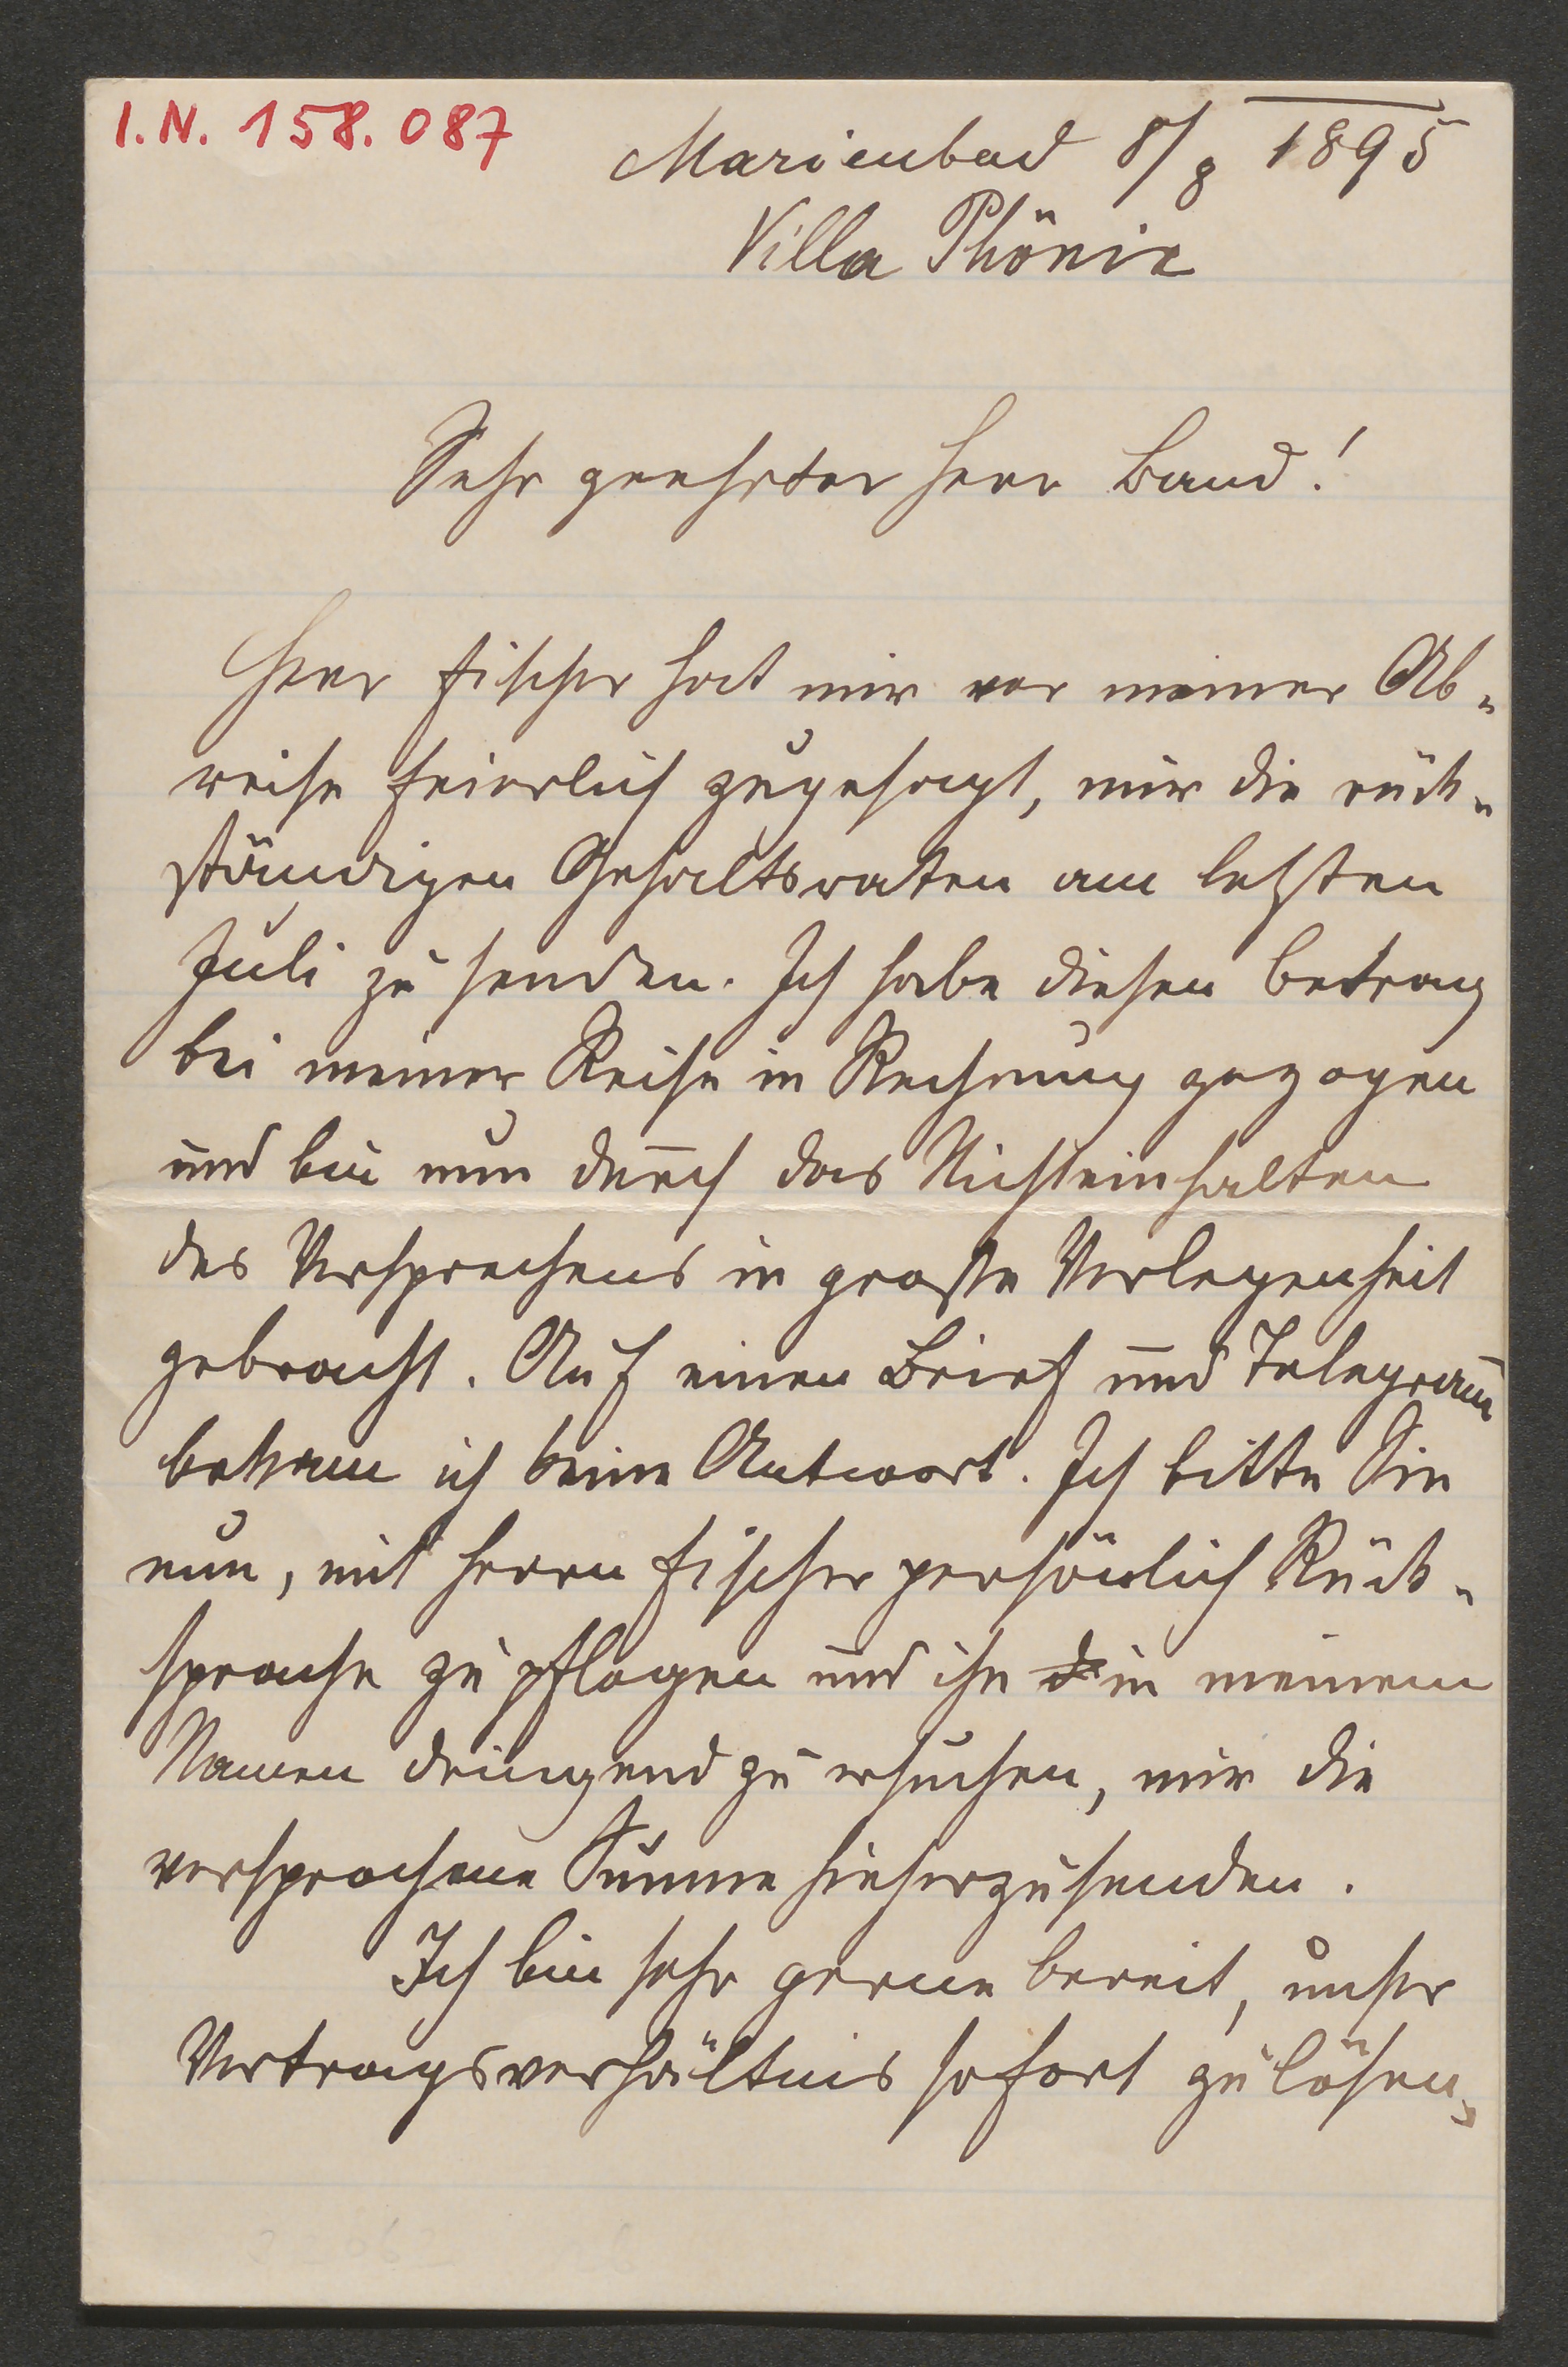 I.N. 158.087
Marienbad 8/8 1895
Villa Phönix
Sehr geehrter Herr Band!
Herr Fischer hat mir vor meiner Ab-
reise feierlich zugesagt, mir die rück-
ständigen Gehaltsraten am letzten
Juli zu senden. Ich habe diesen Betrag
bei meiner Reise in Rechnung gezogen
und bin nun durch das Nichteinhalten
des Versprechens in große Verlegenheit
gebracht. Auf einen Brief und Telegram̄
bekam ich keine Antwort. Ich bitte Sie
nun, mit Herrn Fischer persönlich Rück-
sprache zu pflegen und ihn d in meinem
Namen dringend zu ersuchen, mir die
versprochene Summe hieherzusenden.
Ich bin sehr gerne bereit, unser
Vertragsverhältnis sofort zu lösen,